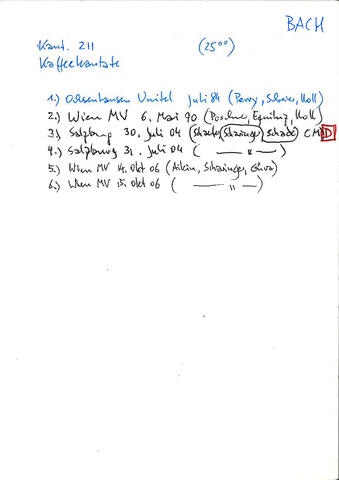 BACH
Kant. 211 (25°°)
Kaffeekantate
1.) Ochsenhausen Unitel Juli 84 (Perry, Schreier, Holl)
2.) Wien MV 6. Mai 90 (Poschner, Equiluz, Holl)
3.) Salzburg 30. Juli 04 (Schade) CMD
4.) Salzburg 31. Juli 04 ( — " — )
5.) Wien MV 14. Okt 06 (Aikin,
6.) Wien MV 15. Okt 06 ( — " — )